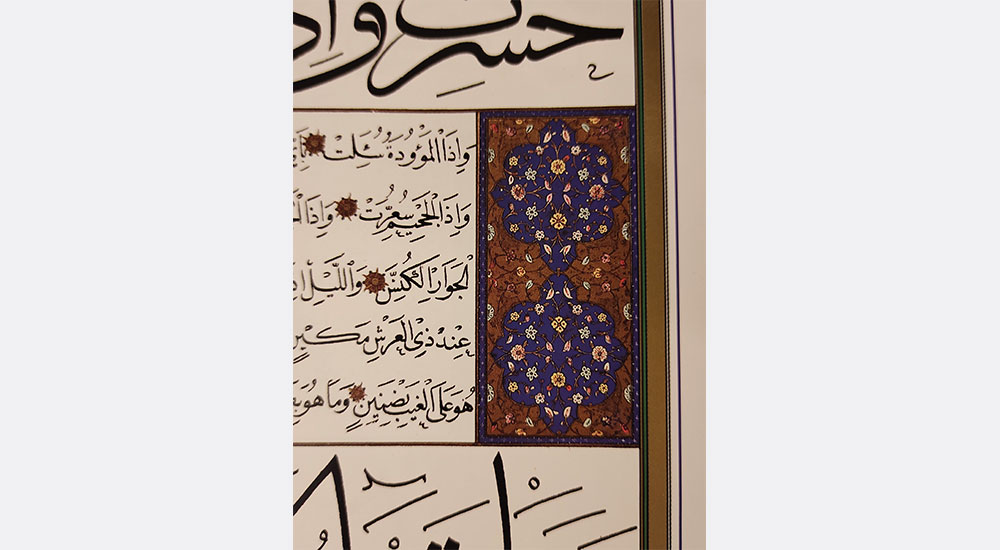 حشرت واذ
وَاِذَا الْمَوْؤُدَةُ سُئِلَتْ بِاَيِّ
وَاِذَا الْجَحِيمُ سُعِّرَتْ وَاِذَا
الْجَوَارِ الْكُنَّسِ وَاللَّيْلِ اِذَ
عِنْدَ ذِي الْعَرْشِ مَكِينٍ
هُوَ عَلَى الْغَيْبِ بِضَنِينٍ وَمَا هُوَ